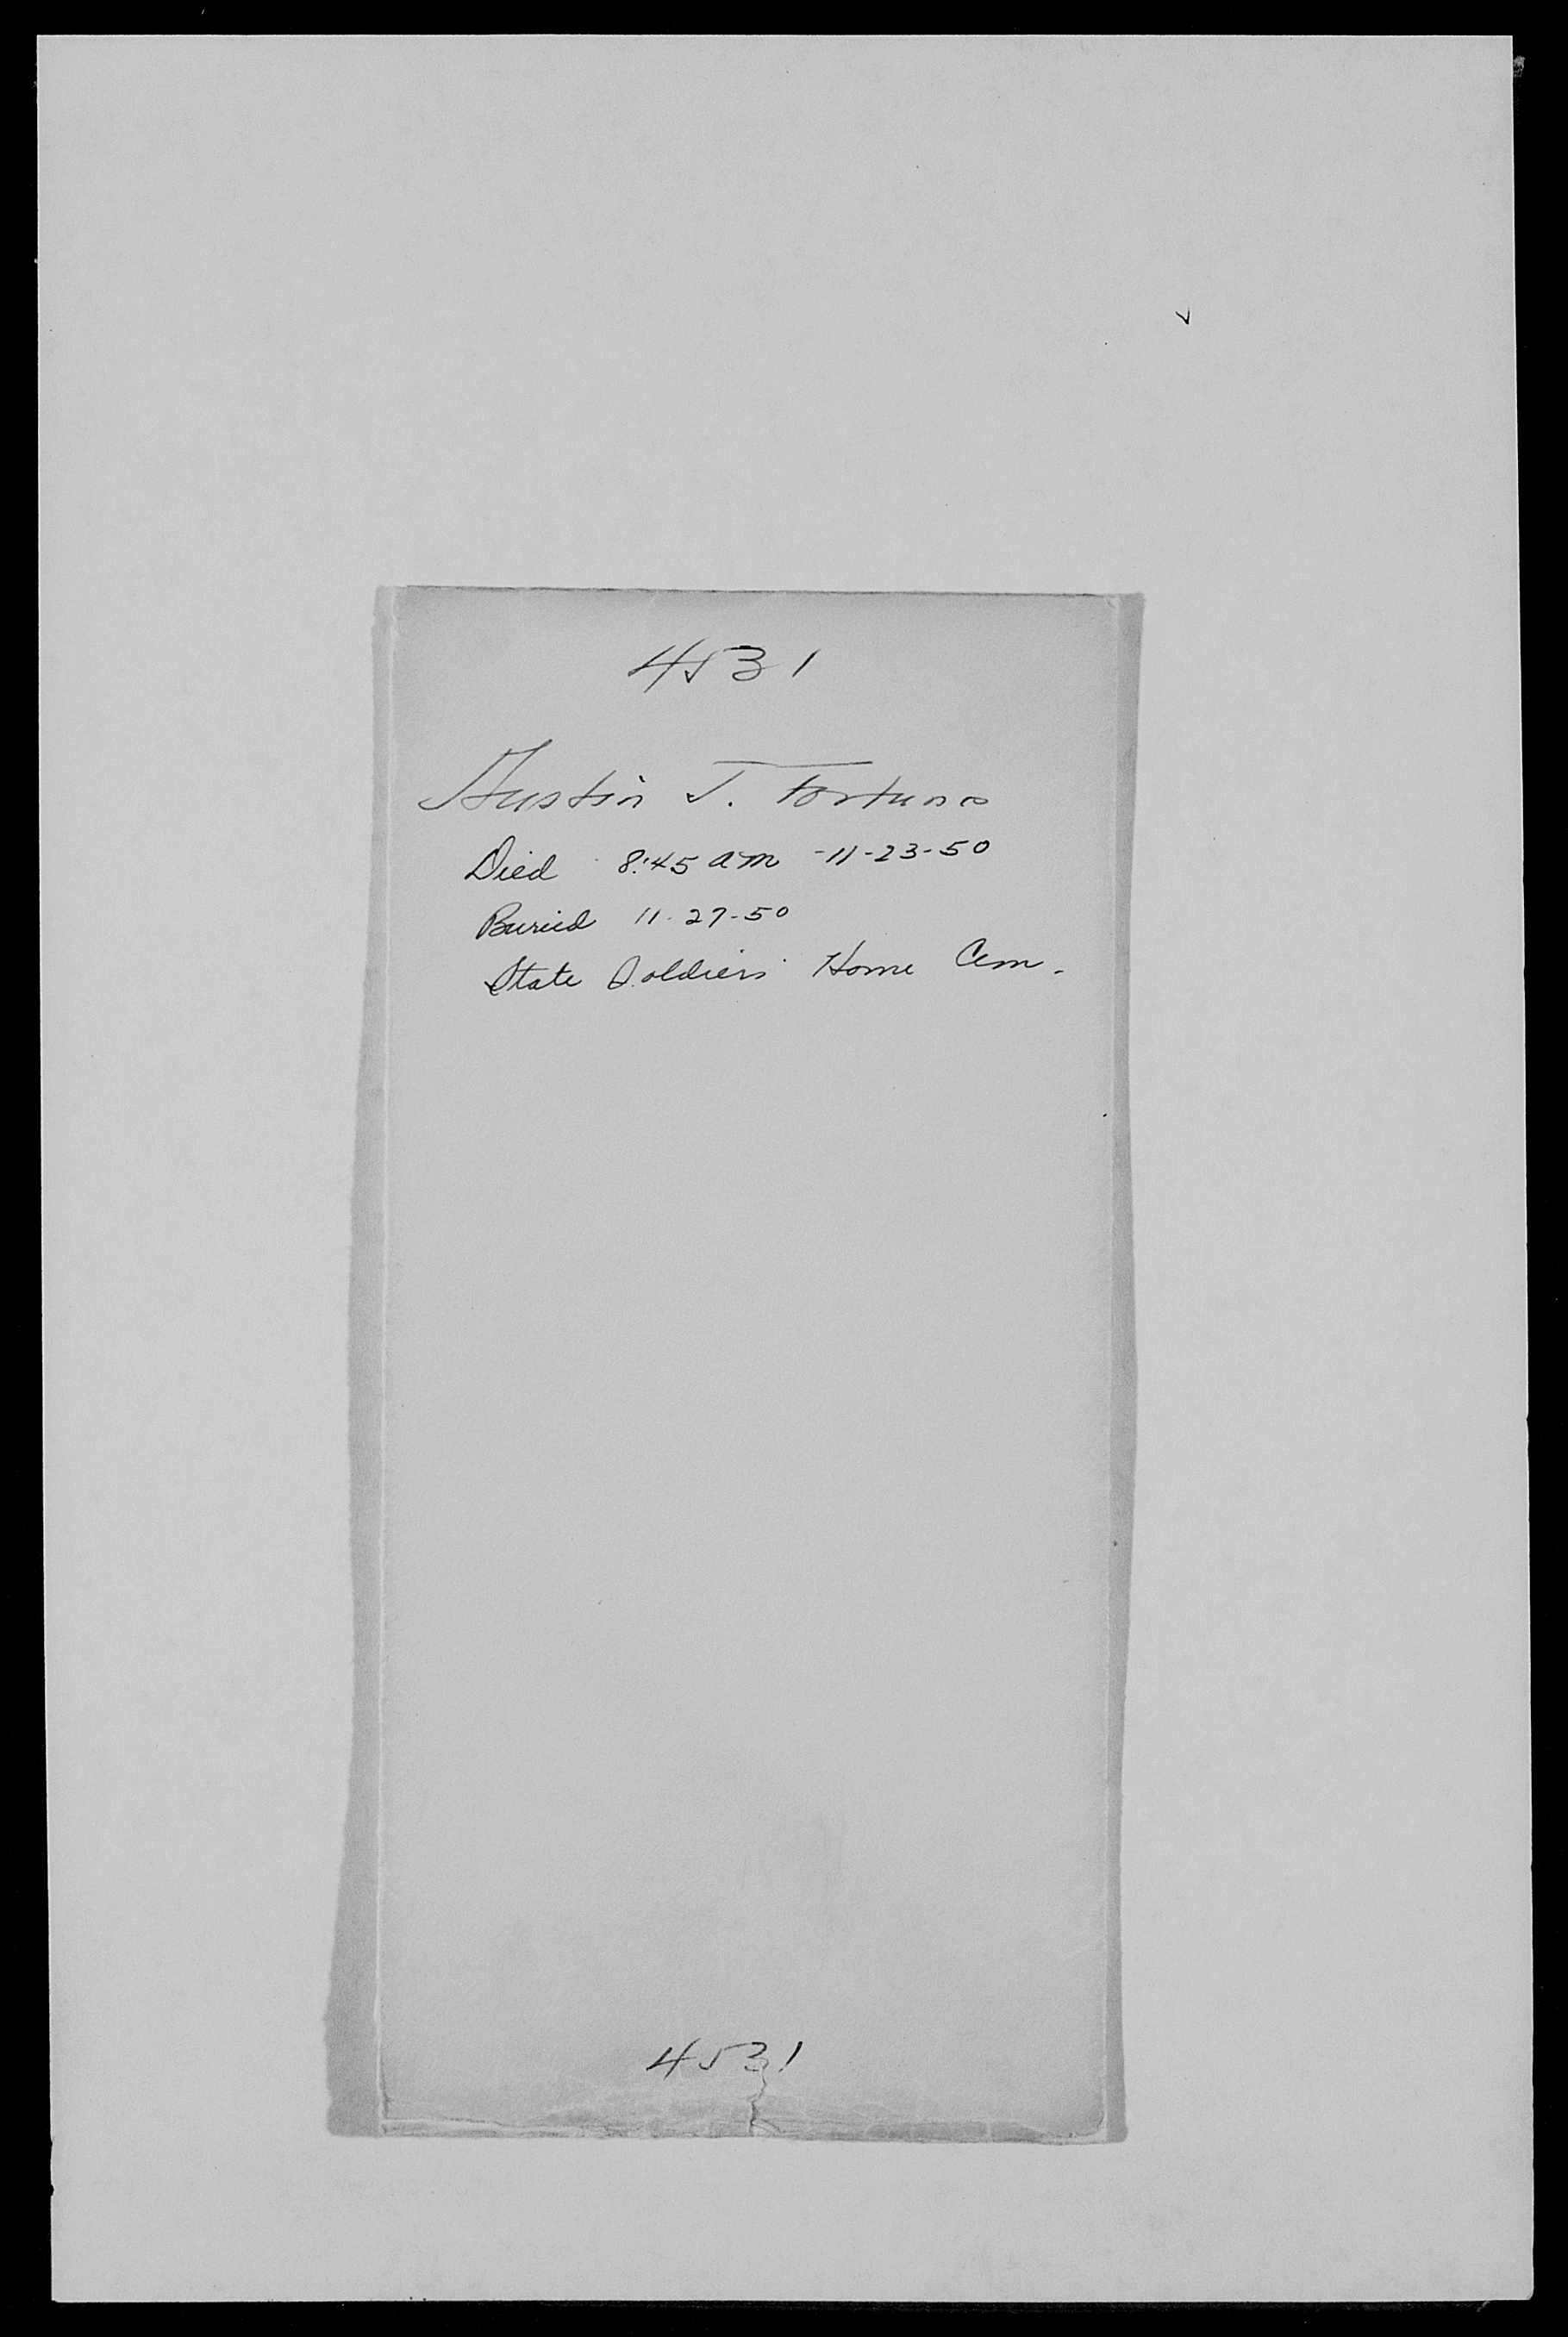 4531
Austin J. Fortune
Died 8:45 am - 11-23-50
Buried 11-27-50
State Soldiers' Home Cem.
4531